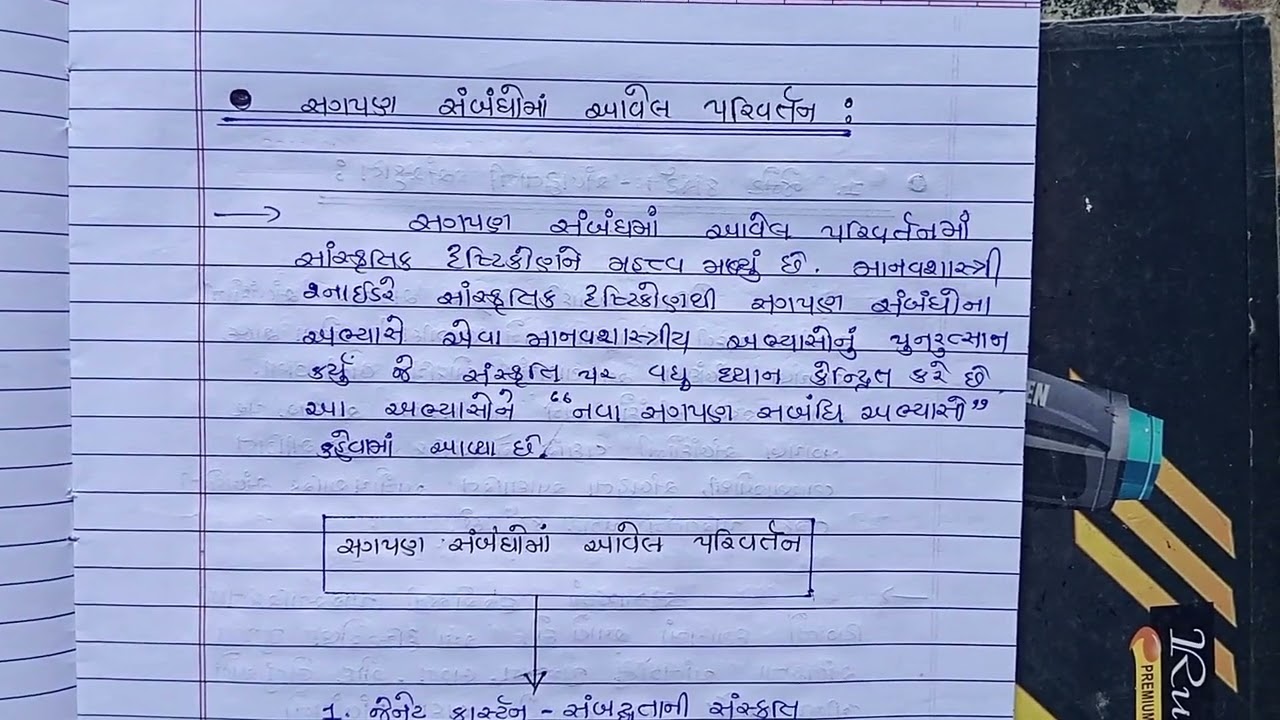 સગપણ સંબંધોમાં આવેલ પરિવર્તન :
→ સગપણ સંબંધમાં આવેલ પરિવર્તનમાં
સાંસ્કૃતિક દૃષ્ટિકોણને મહત્ત્વ મળ્યું છે. માનવશાસ્ત્રી
શ્નાઈડરે સાંસ્કૃતિક દૃષ્ટિકોણથી સગપણ સંબંધોના
અભ્યાસે એવા માનવશાસ્ત્રીય અભ્યાસોનું પુનરુત્સાન
કર્યું જે સંસ્કૃતિ પર વધુ ધ્યાન કેન્દ્રિત કરે છે
આ અભ્યાસોને “નવા સગપણ સબંધિ અભ્યાસો”
કહેવામાં આવ્યા છે.
સગપણ સંબંધોમાં આવેલ પરિવર્તન
1. જેનેટ કાર્સ્ટન - સંબદ્ધતાની સંસ્કૃતિ
PREMIUM